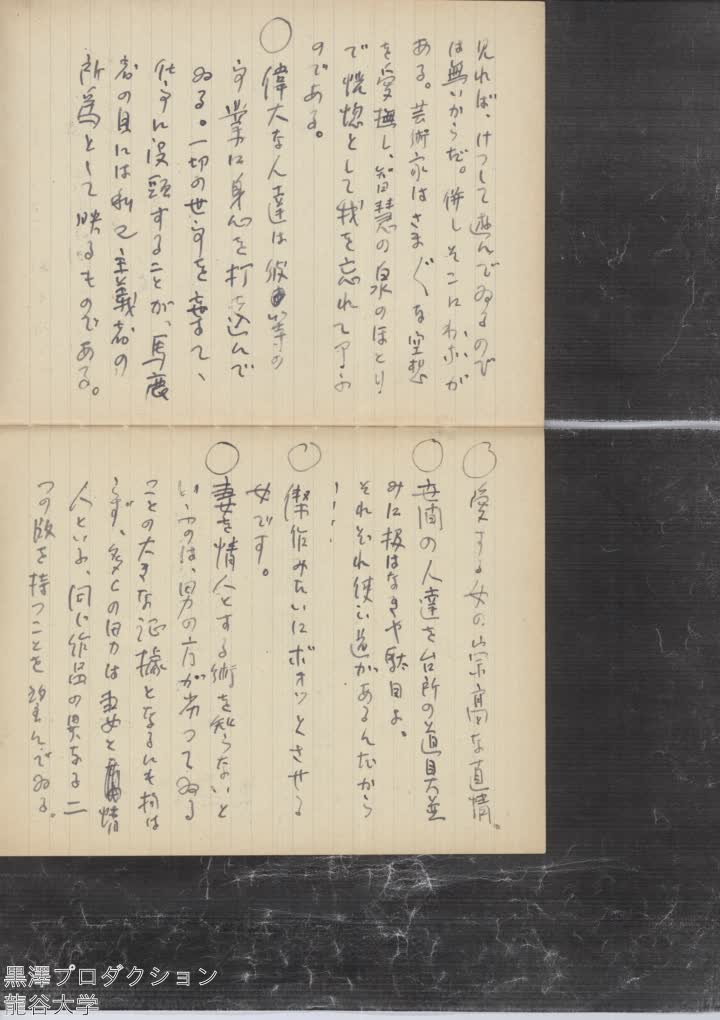 見れば、けつして遊んでゐるのび
は無いからだ。併しそこにわなが
ある。芸術家はさまざまな空想
を愛撫し、智慧の泉のほとり
で恍惚として我を忘れて了ふ
のである。
○ 偉大な人達は彼等の
事業に身心を打ち込んで
ゐる。一切の世事を棄て、
仕事に没頭することが、馬鹿
者の目には利己主義者の
所為として映るものである。
○ 愛する女の崇高な直情。
○ 世間の人達を台所の道具並
みに扱はなきや駄目よ。
それぞれ使ひ道があるんだから
・・・・
○ 傑作みたいにボオッとさせる
女です。
○ 妻を情人とする術を知らないと
いふのは、男の方が劣つてゐる
ことの大きな証據となるにも拘は
らず、多くの男は妻と情
人といふ、同じ作品の異なる二
つの版を持つことを望んでゐる。
黒澤プロダクション
龍谷大学